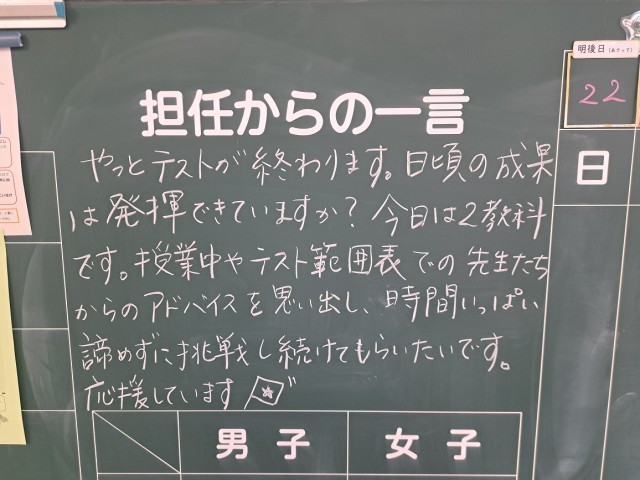 明後日(あさって)
22
日
担任からの一言
やっとテストが終わります。日頃の成果
は発揮できていますか?今日は2教科
です。授業中やテスト範囲表での先生たち
からのアドバイスを思い出し、時間いっぱい
諦めずに挑戦し続けてもらいたいです。
応援しています
男子 女子